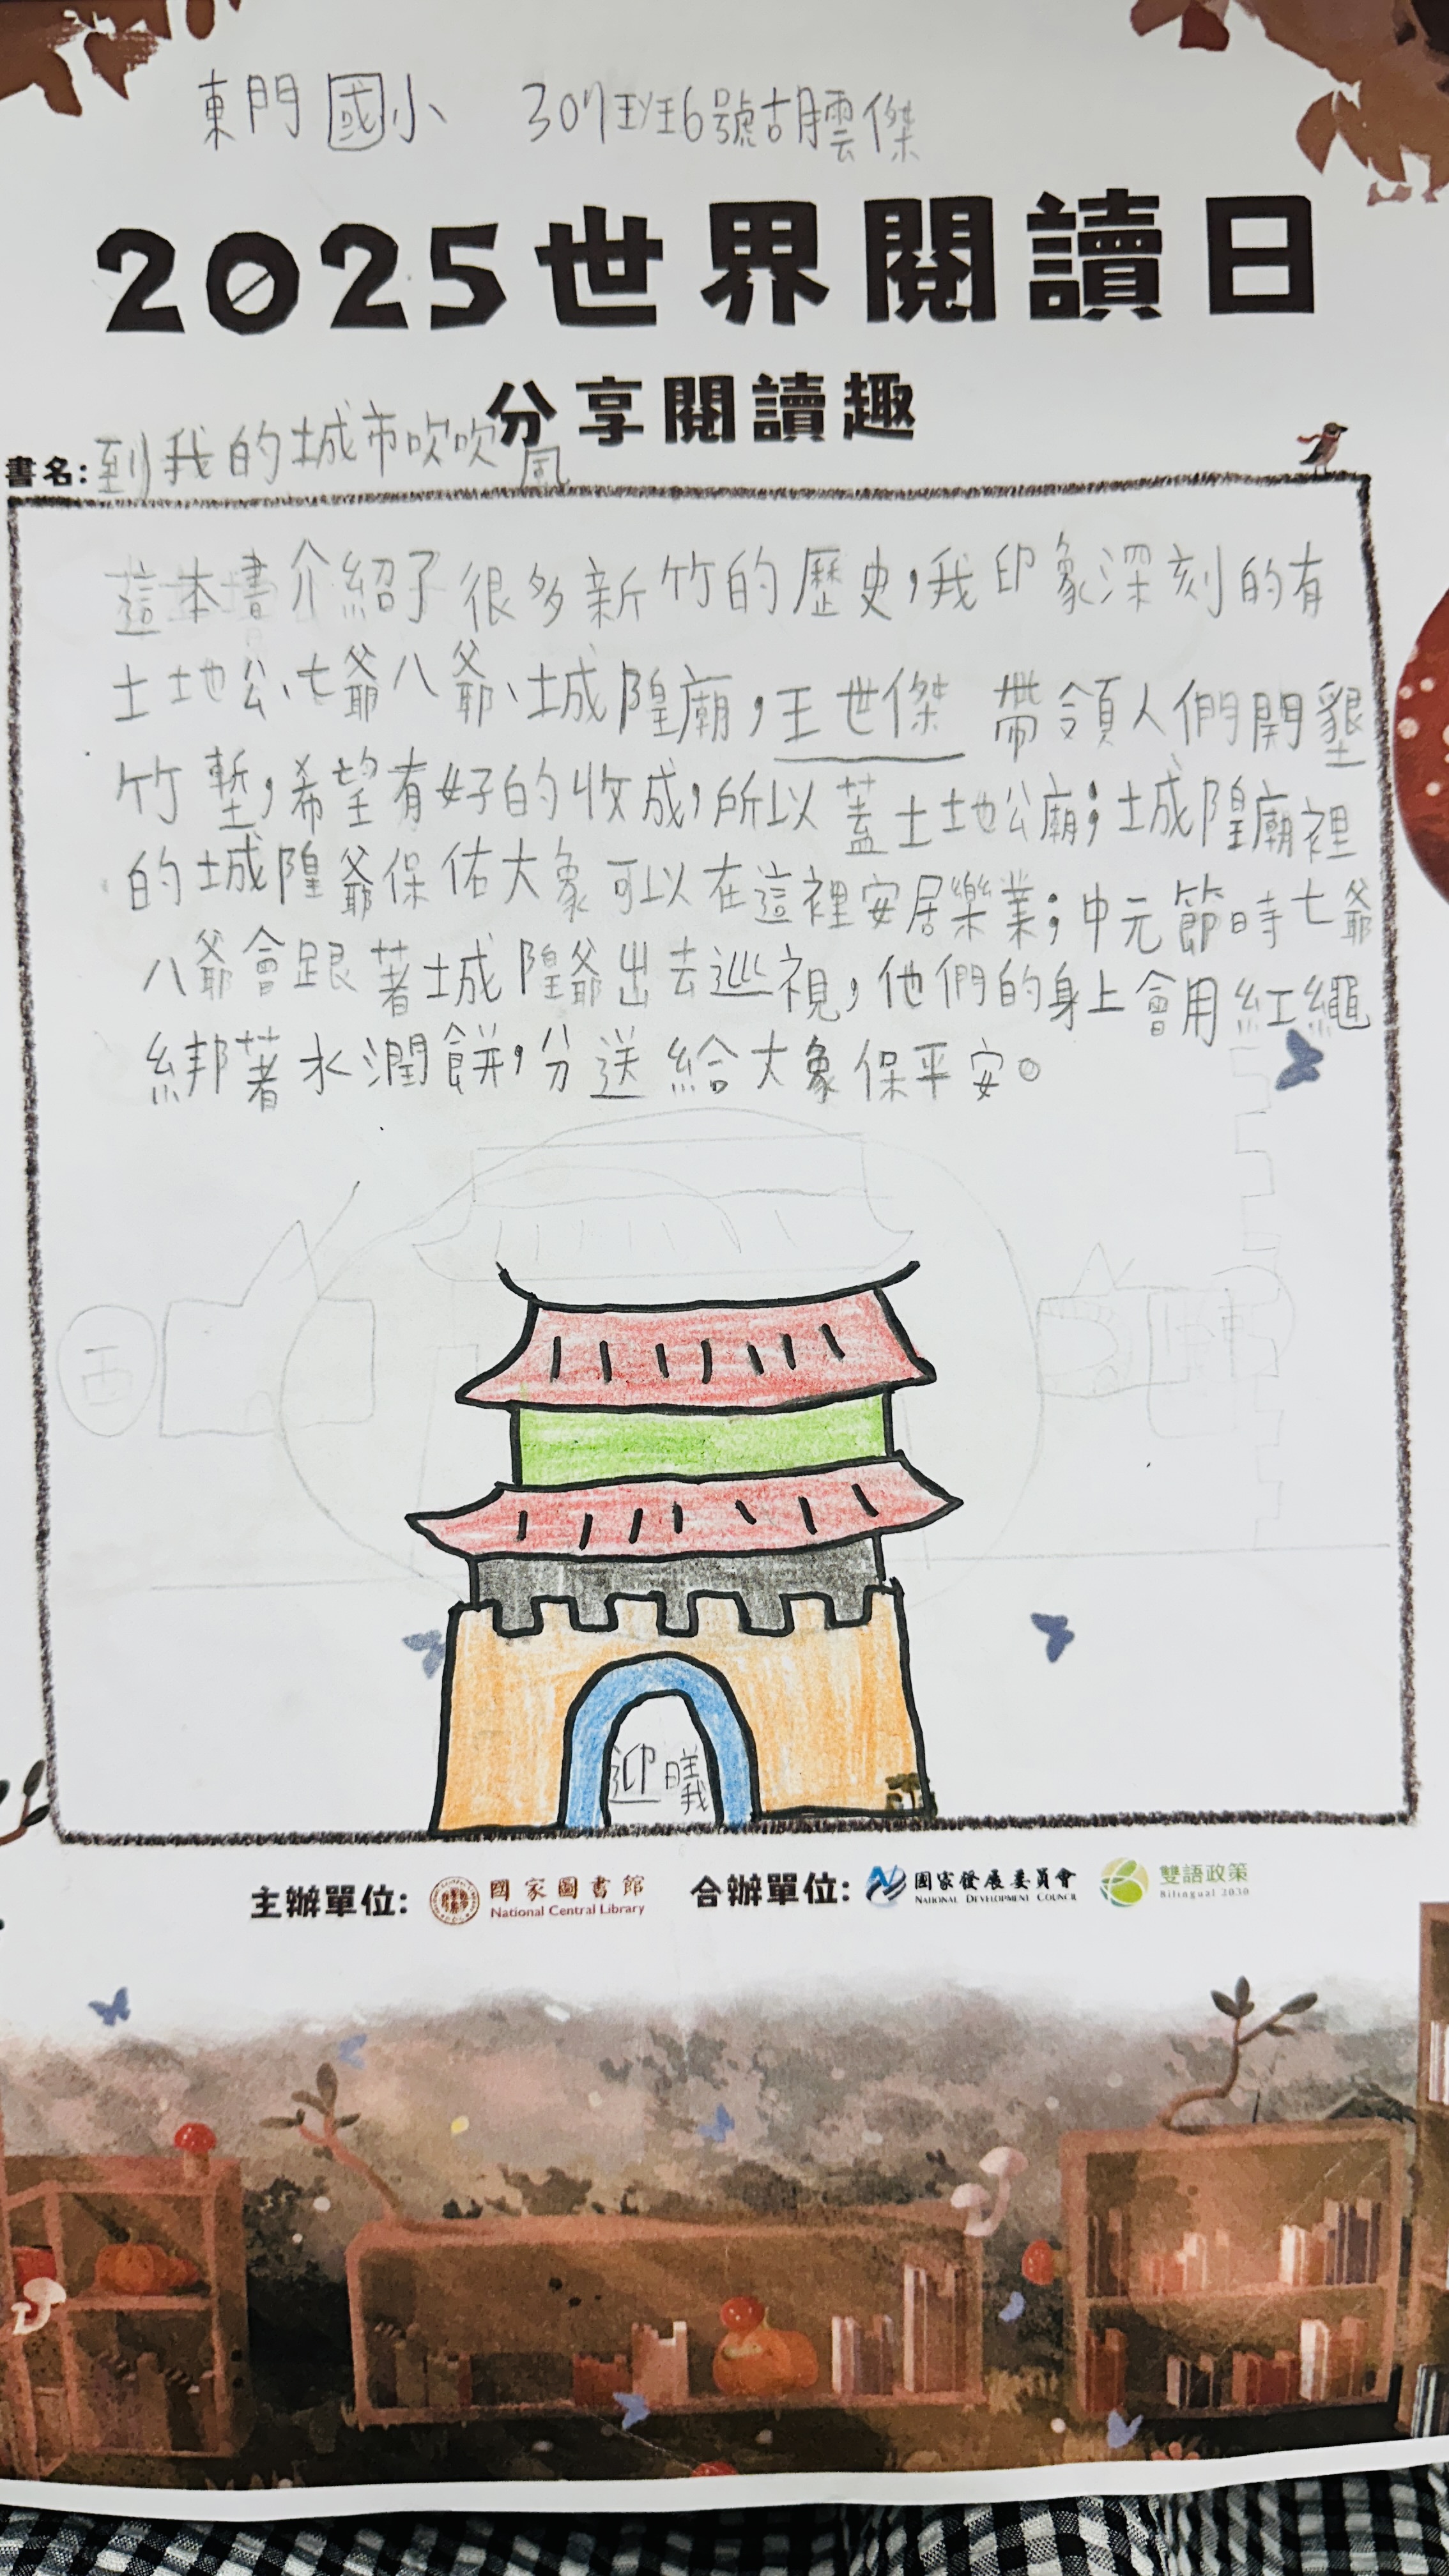 東門國小 307班6號胡雲傑
2025世界閱讀日
分享閱讀趣
書名:到我的城市吹吹風
這本書介紹了很多新竹的歷史,我印象深刻的有
土地公、七爺八爺、城隍廟,王世傑 帶領人們開墾
竹塹,希望有好的收成,所以蓋土地公廟;城隍廟裡
的城隍爺保佑大象可以在這裡安居樂業;中元節時七爺
八爺會跟著城隍爺出去巡視,他們的身上會用紅繩
綁著水潤餅,分送給大象保平安。
西
迎曦
主辦單位: 國家圖書館 National Central Library 合辦單位: 國家發展委員會 NATIONAL DEVELOPMENT COUNCIL 雙語政策 Bilingual 2030